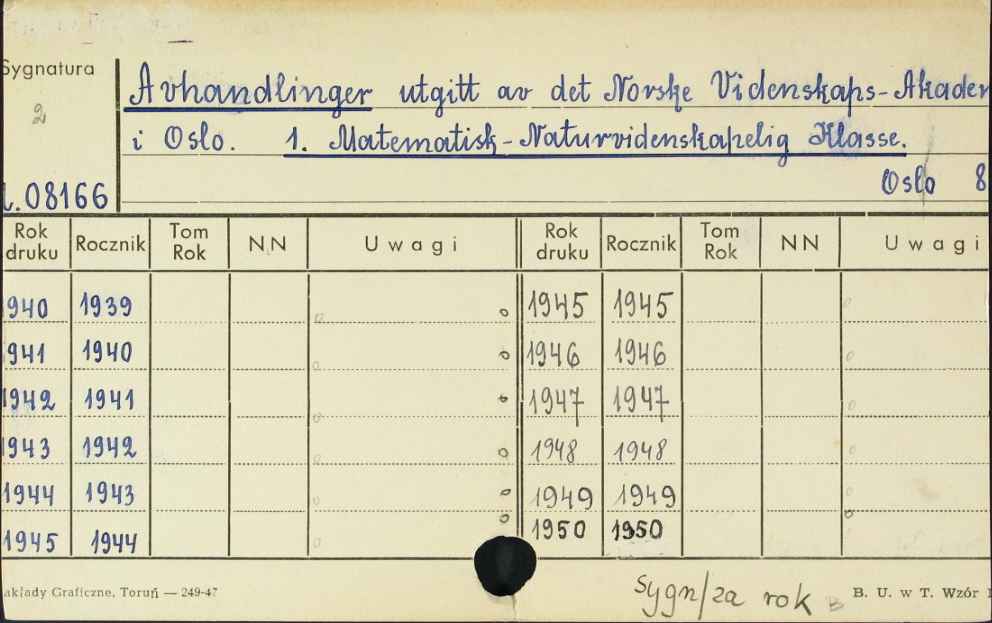 Sygnatura
Avhandlinger utgitt av det Norske Videnskaps-Akadem
2
i Oslo. 1. Matematisk-Naturvidenskapelig Klasse.
Oslo 8
.08166
Rok druku Rocznik Tom Rok NN Uwagi Rok druku Rocznik Tom Rok NN Uwagi
940 1939 1945 1945
941 1940 1946 1946
1942 1941 1947 1947
943 1942 1948 1948
1944 1943 1949 1949
1945 1944 1950 1950
akłady Graficzne, Toruń — 249-47 sygn/za rok B B. U. w T. Wzór 1